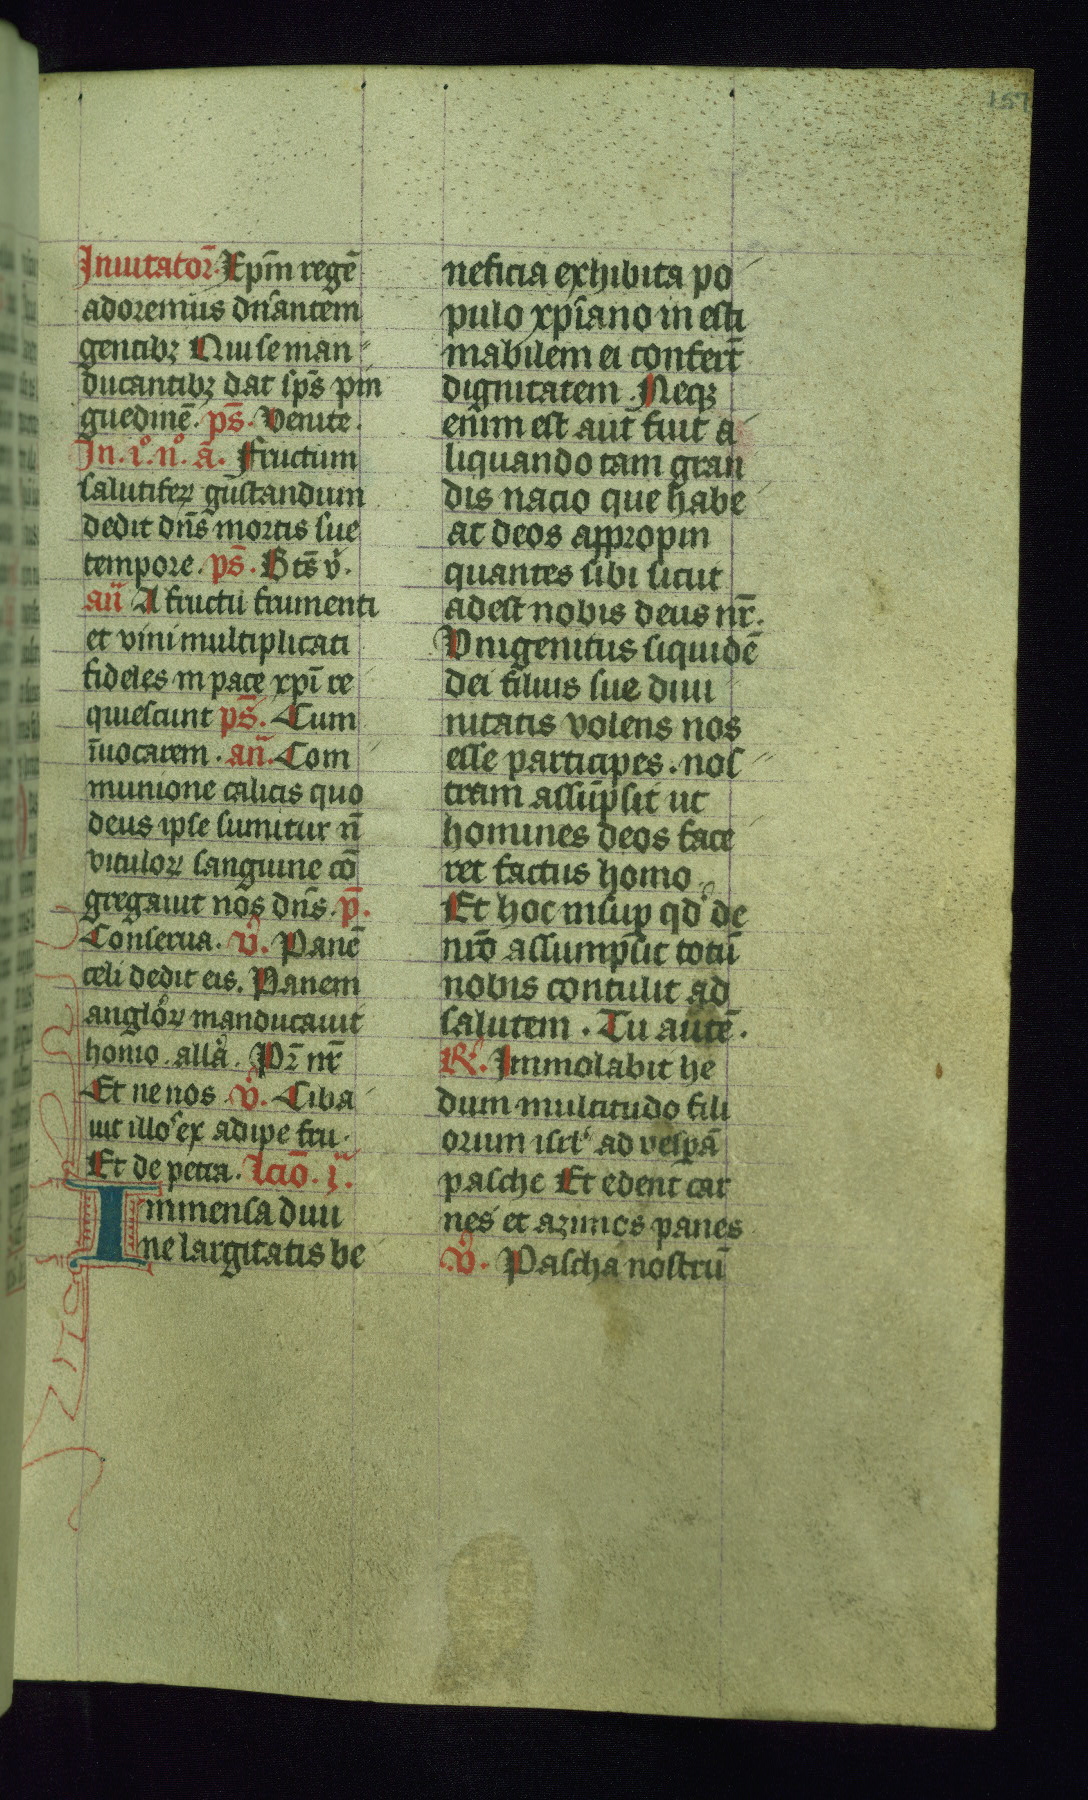 157
Inuitator̄. Xp̄m regē
adoremus dn̄antem
gentibꝫ Qui se man
ducantibꝫ dat sp̄s pin
guedinē. ps̄. Venite.
In. i°. n°. a̅. Fructum
salutiferꝝ gustandum
dedit dn̄s mortis sue
tempore. ps̄. Bt̄s v̇.
an̄ A fructu frumenti
et vini multiplicati
fideles in pace xp̄i re
quiescunt ps̄. Cum
īuocarem. an̄. Com
munione calicis quo
deus ipse sumitur n̄
vitulorꝝ sanguine cō
gregauit nos dn̄s. p̄.
Conserua. v̇. Panē
celi dedit eis. Panem
anglorꝝ manducauit
homo. alla̅. Pr̄ nr̄
Et ne nos. v̇. Ciba
uit illos ex adipe fru.
Et de petra. lc̄io. j.
Immensa diui
ne largitatis be
neficia exhibita po
pulo xp̄iano in esti
mabilem ei confert̄
dignitatem. Neqꝫ
enim est aut̄ fuit a
liquando tam gran
dis nacio que habe
at deos appropin
quantes sibi sicut
adest nobis deus nr̄.
Vnigenitus siquidē
dei filius sue diui
nitatis volens nos
esse participes. nos
tram assūpsit ut
homines deos face
ret factus homo
Et hoc insuꝑ qd' de
nr̄o assumpsit totū
nobis contulit ad
salutem. Tu autē.
R̷. Immolabit he
dum multitudo fili
orum isrl' ad vesꝑā
pasche Et edent car
nes et azimos panes
v̇. Pascha nostrū